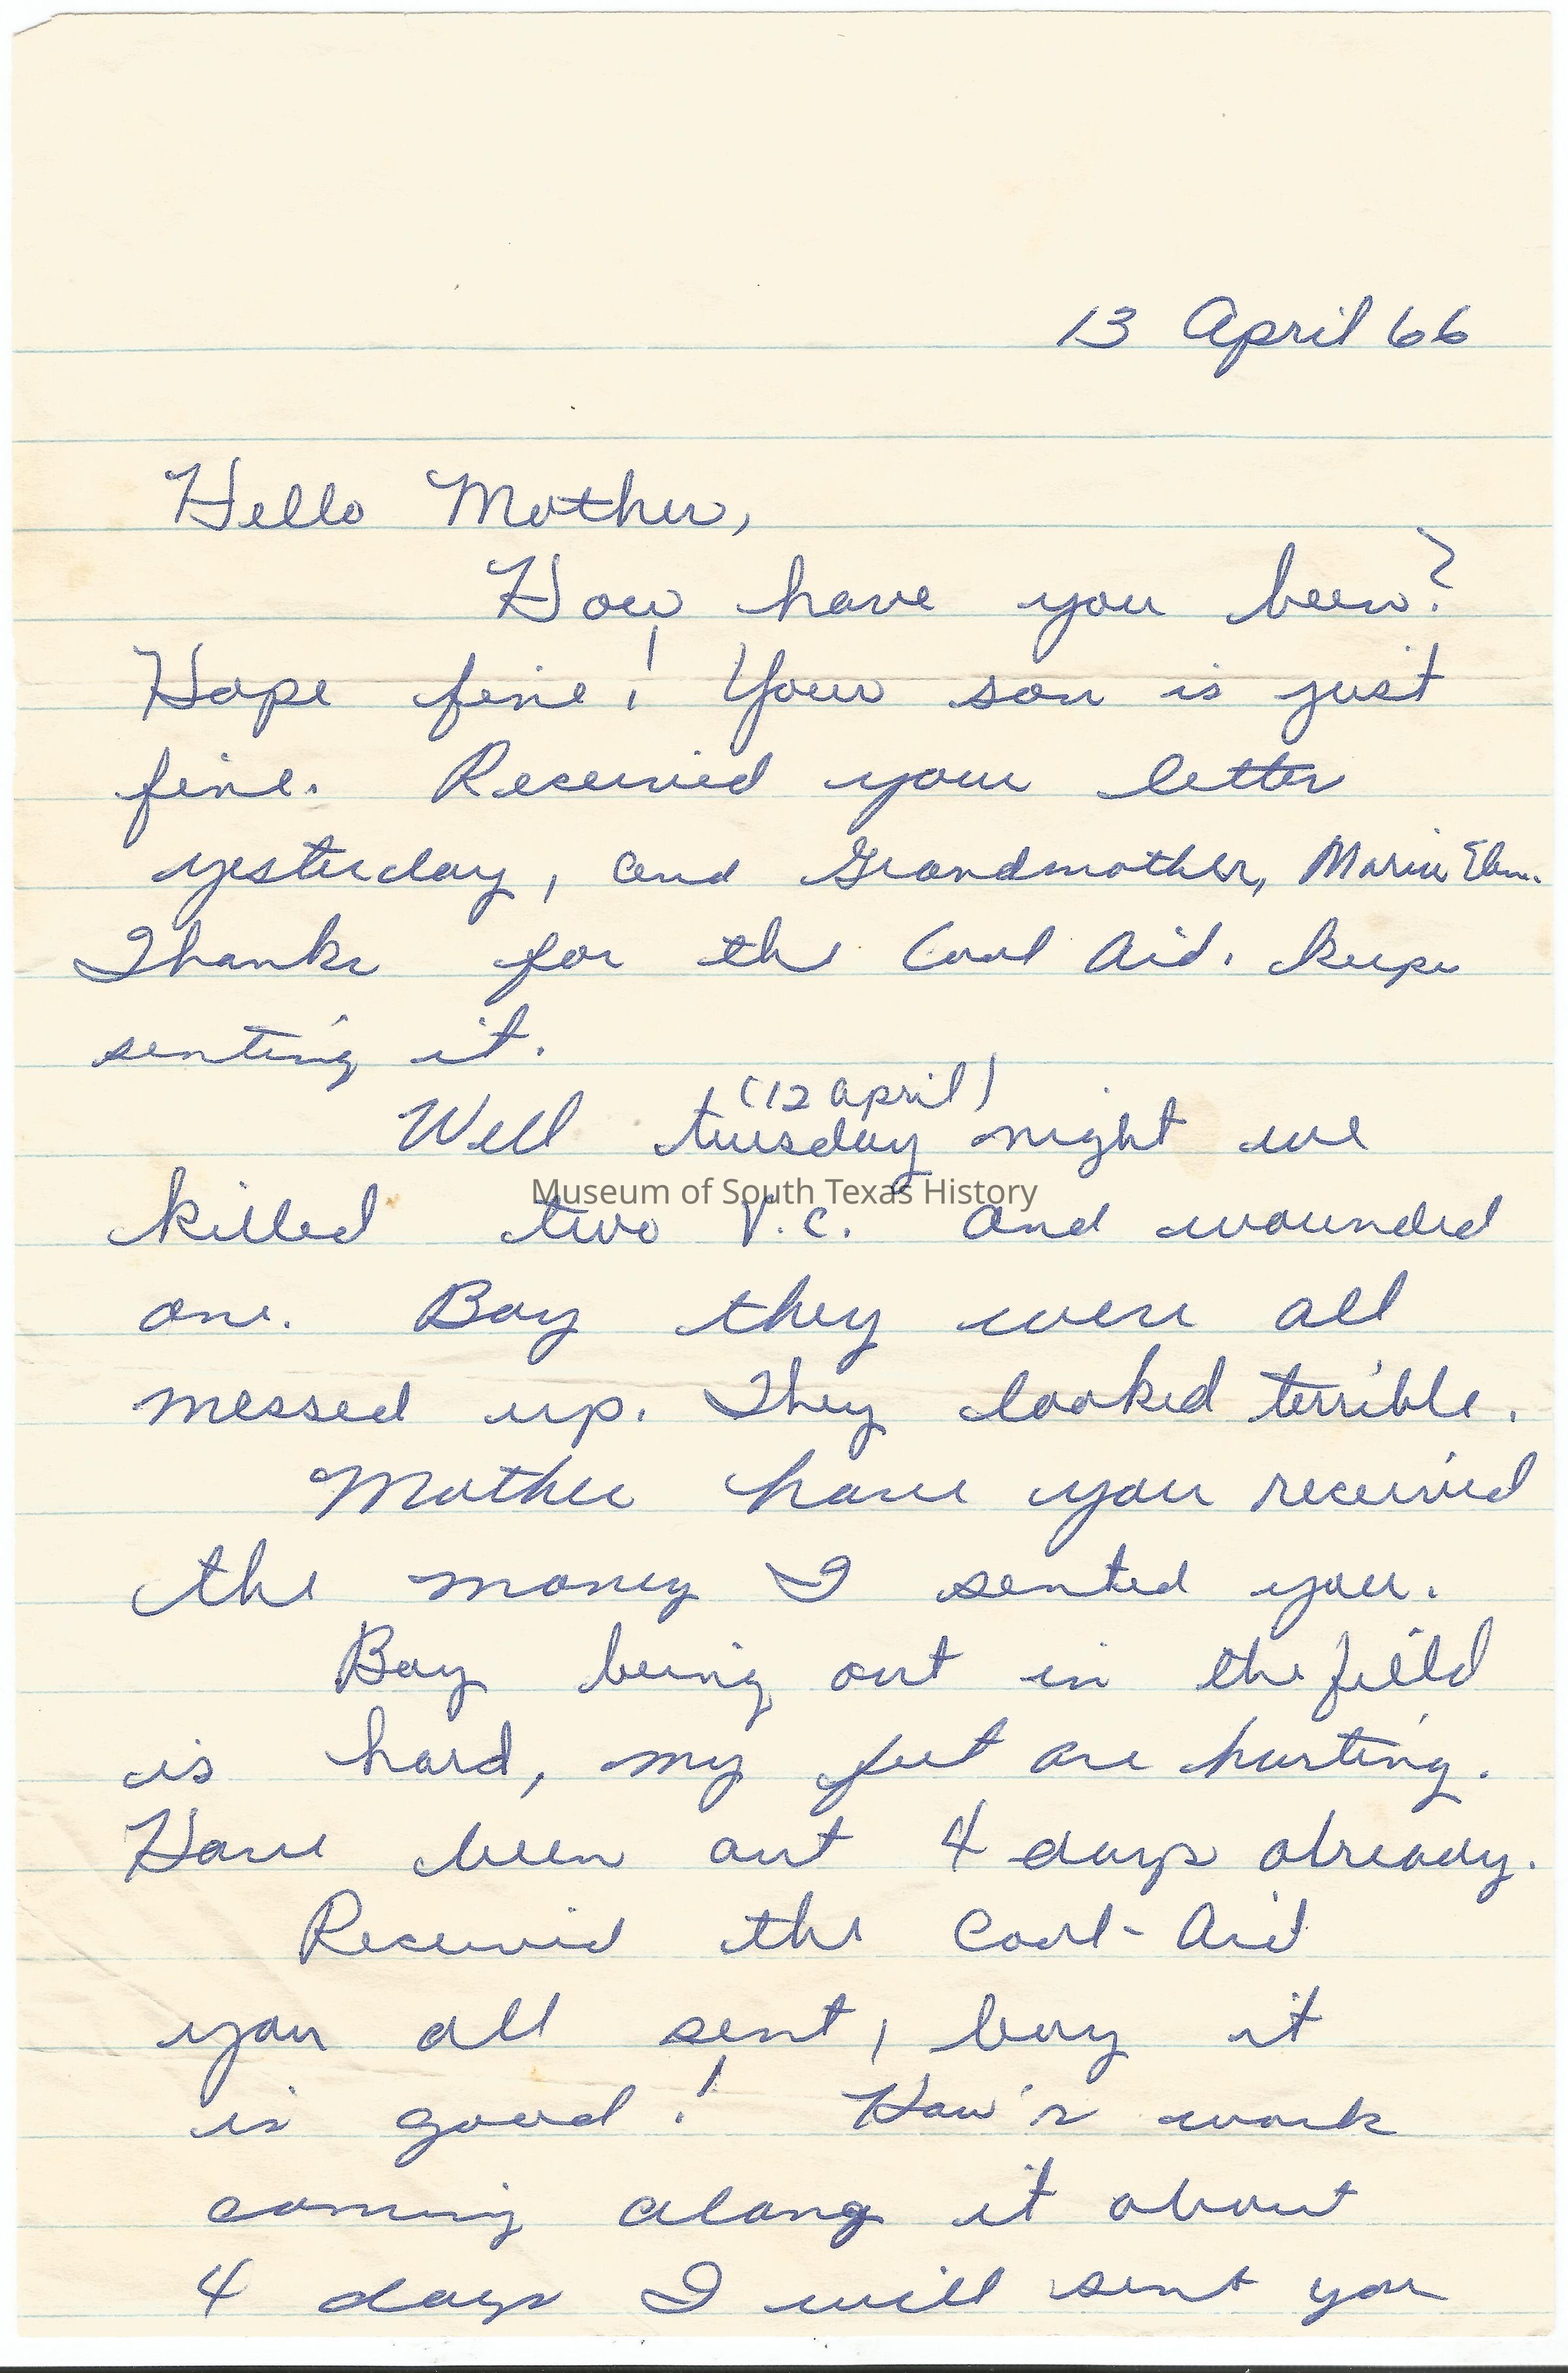 13 April 66
Hello Mother,
How have you been?
Hope fine! Your son is just
fine. Received your letter
yesterday, and Grandmother, Maria
Thanks for the Cool Aid. Keepe
senting it.
(12 April)
Well tuesday night we
Museum of South Texas History
killed two V.C. and wounded
one. Boy they were all
messed up. They looked terrible.
Mother have you received
the money I sented you.
Boy being out in the field
is hard, my feet are hurting.
Have been out 4 days already.
Received the Cool-Aid
you all sent, boy it
is good! How's work
coming along it about
4 days I will sent you